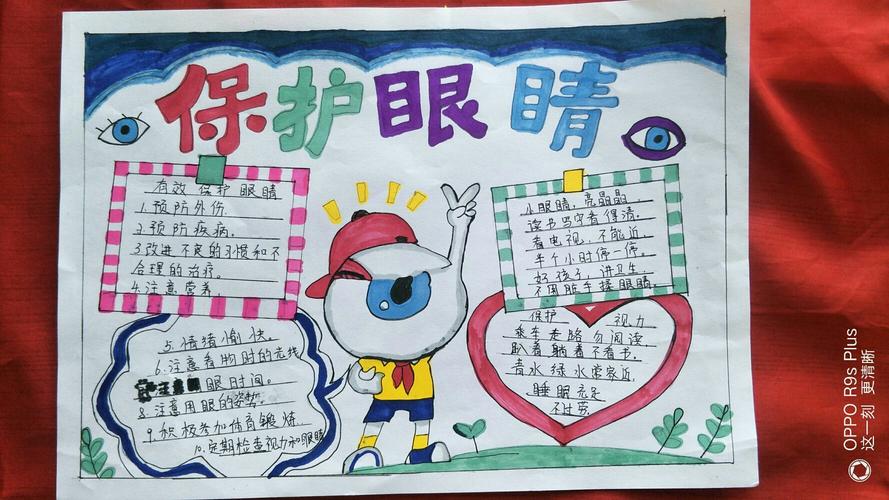 保护眼睛
有效保护眼睛
1.预防外伤.
2.预防疾病.
3.改进不良的习惯和不
合理的治疗.
4.注意营养.
5.情绪愉快.
6.注意看物时的光线
注意 眼时间。
8.注意用眼的姿势.
9.积极参加体育锻炼.
10.定期检查视力和眼睛
小眼睛,亮晶晶
读书写字看得清.
看电视,不能近.
半个小时停一停.
好孩子,讲卫生.
不用脏手揉眼睛.
保护 视力
乘车走路勿阅读,
趴着躺着不看书.
青水绿水常家近,
睡眠充足
OPPO R9s Plus
这一刻 更清晰